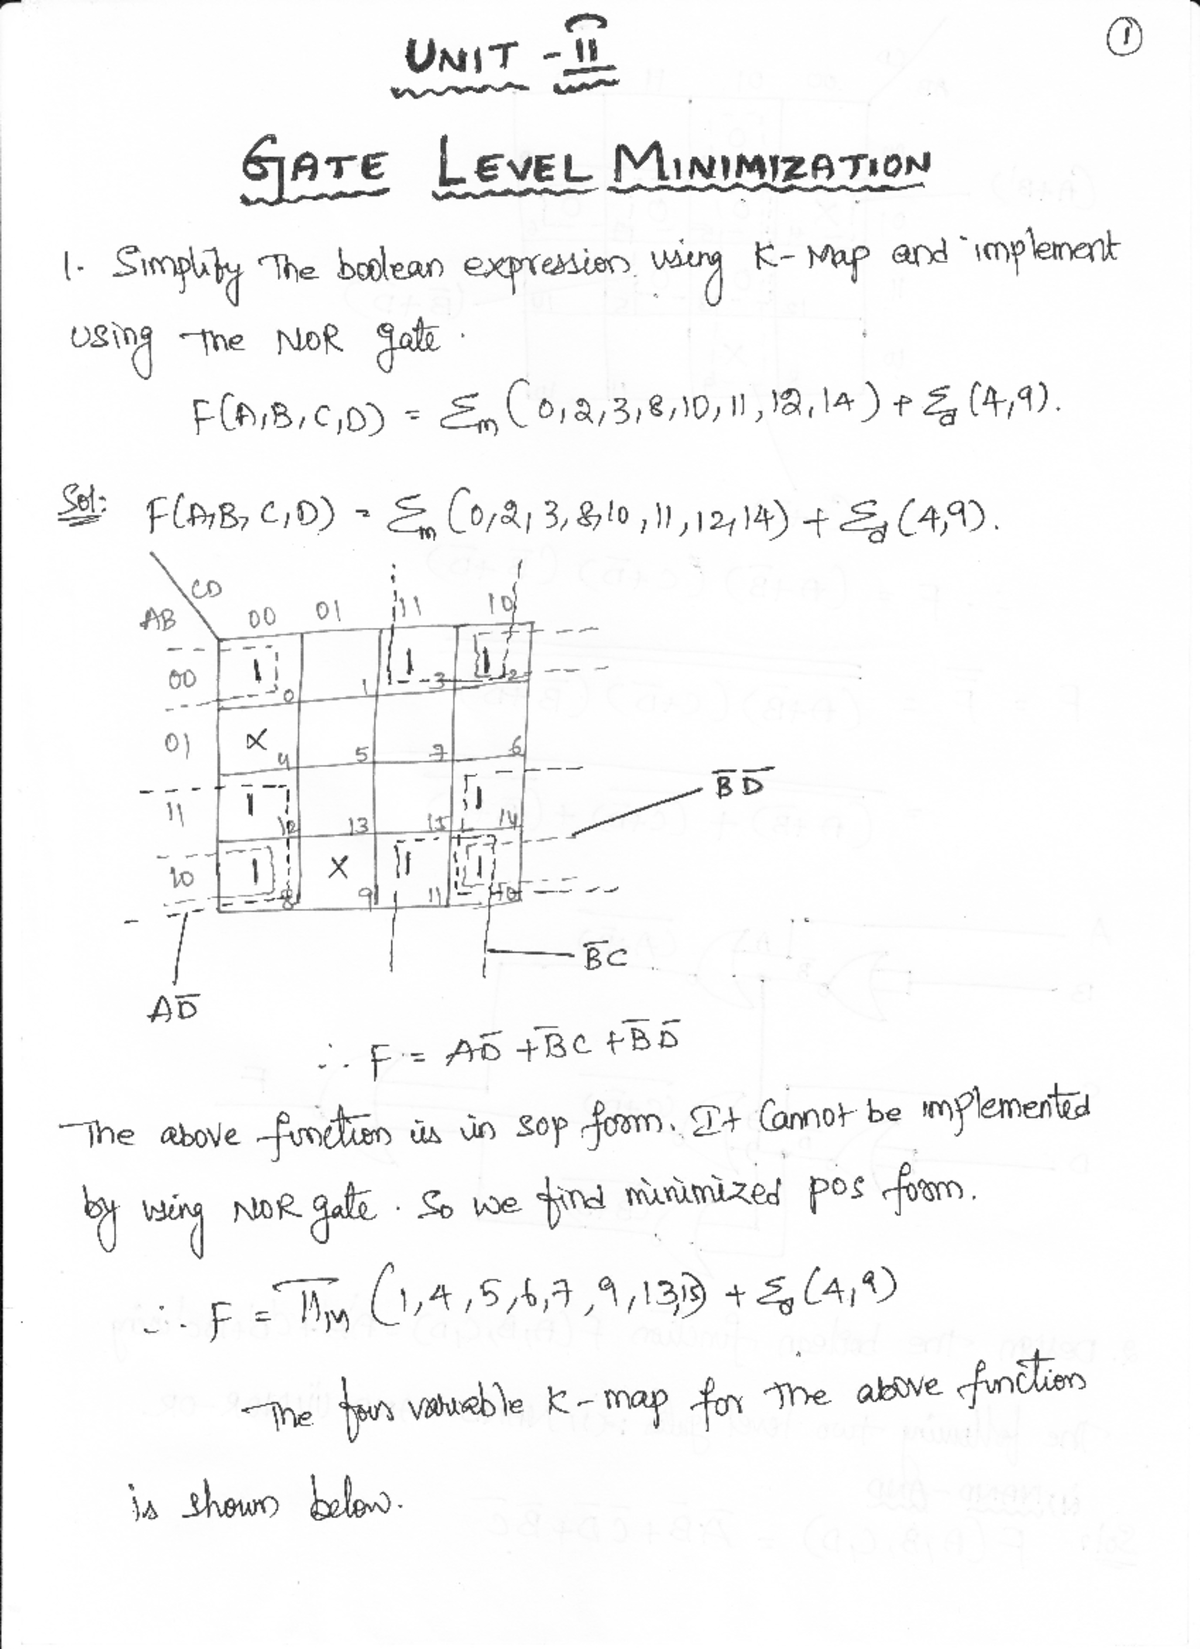 1
UNIT - II
GATE LEVEL MINIMIZATION
1. Simplify The boolean expression using K-Map and implement
using The NOR gate.
F(A,B,C,D) = Σm (0,2,3,8,10,11,12,14) + Σd (4,9).
Sol: F(A,B,C,D) = Σm (0,2,3,8,10,11,12,14) + Σd (4,9).
CD
AB 00 01 11 10
00 1 0 1 1 3 1 2
01 X 4 5 7 6
11 1 12 13 15 1 14
10 1 8 X 9 1 11 1 10
B̅D̅
B̅C
AD̅
∴ F = AD̅ + B̅C + B̅D̅
The above function is in SOP form. It Cannot be implemented
by using NOR gate. So we find minimized pos form.
∴ F = ΠM (1,4,5,6,7,9,13,15) + Σd (4,9)
The four variable K-map for The above function
is shown below.